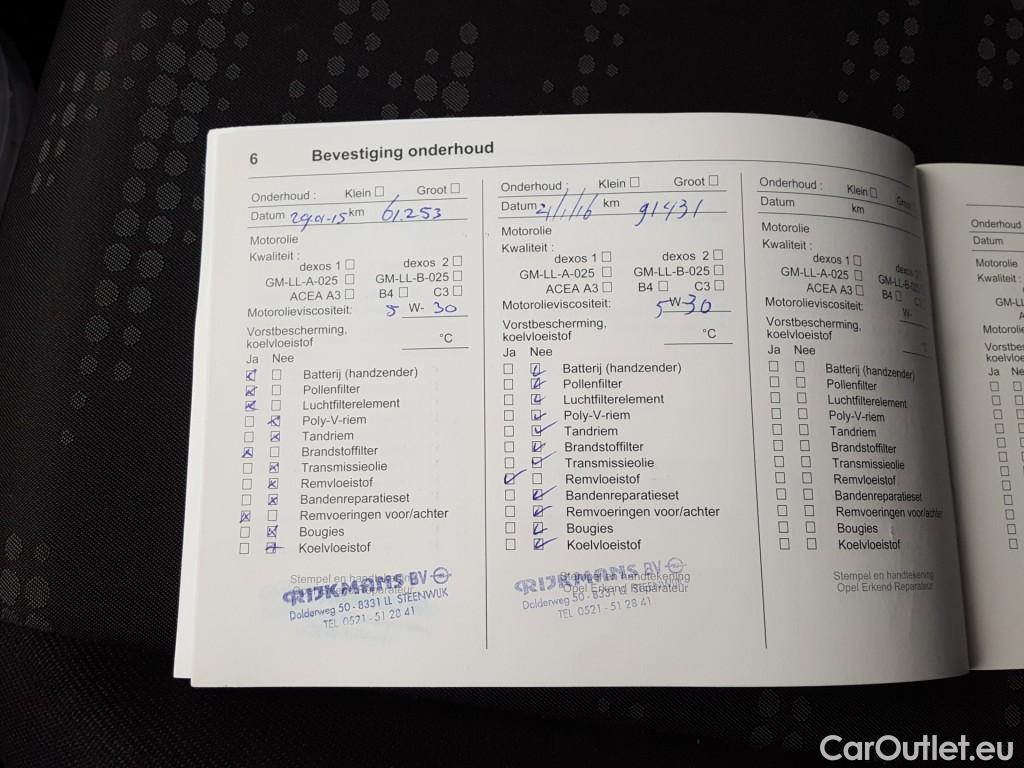 6 Bevestiging onderhoud
Onderhoud : Klein Groot
Datum 29-01-15 km 61.253
Motorolie
Kwaliteit :
dexos 1 dexos 2
GM-LL-A-025 GM-LL-B-025
ACEA A3 B4 C3
Motorolieviscositeit: 5 W- 30
Vorstbescherming,
koelvloeistof °C
Ja Nee
Batterij (handzender)
Pollenfilter
Luchtfilterelement
Poly-V-riem
Tandriem
Brandstoffilter
Transmissieolie
Remvloeistof
Bandenreparatieset
Remvoeringen voor/achter
Bougies
Koelvloeistof
Stempel en handtekening
RIJKMANS BV
Dolderweg 50 - 8331 LL STEENWIJK
TEL 0521 - 51 28 41
Onderhoud : Klein Groot
Datum 21/1/16 km 91431
Motorolie
Kwaliteit :
dexos 1 dexos 2
GM-LL-A-025 GM-LL-B-025
ACEA A3 B4 C3
Motorolieviscositeit: 5 W- 30
Vorstbescherming,
koelvloeistof °C
Ja Nee
Batterij (handzender)
Pollenfilter
Luchtfilterelement
Poly-V-riem
Tandriem
Brandstoffilter
Transmissieolie
Remvloeistof
Bandenreparatieset
Remvoeringen voor/achter
Bougies
Koelvloeistof
Stempel en handtekening
Opel Erkend Reparateur
RIJKMANS BV
Dolderweg 50 - 8331 LL STEENWIJK
TEL 0521 - 51 28 41
Onderhoud : Klein Groot
Datum km
Motorolie
Kwaliteit :
dexos 1 dexos 2
GM-LL-A-025 GM-LL-B-025
ACEA A3 B4 C3
Motorolieviscositeit: W-
Vorstbescherming,
koelvloeistof °C
Ja Nee
Batterij (handzender)
Pollenfilter
Luchtfilterelement
Poly-V-riem
Tandriem
Brandstoffilter
Transmissieolie
Remvloeistof
Bandenreparatieset
Remvoeringen voor/achter
Bougies
Koelvloeistof
Stempel en handtekening
Opel Erkend Reparateur
Onderhoud
Datum
Motorolie
Kwaliteit :
GM-LL
Motorolie
Vorstbes
koelvloe
Ja Ne
CarOutlet.eu